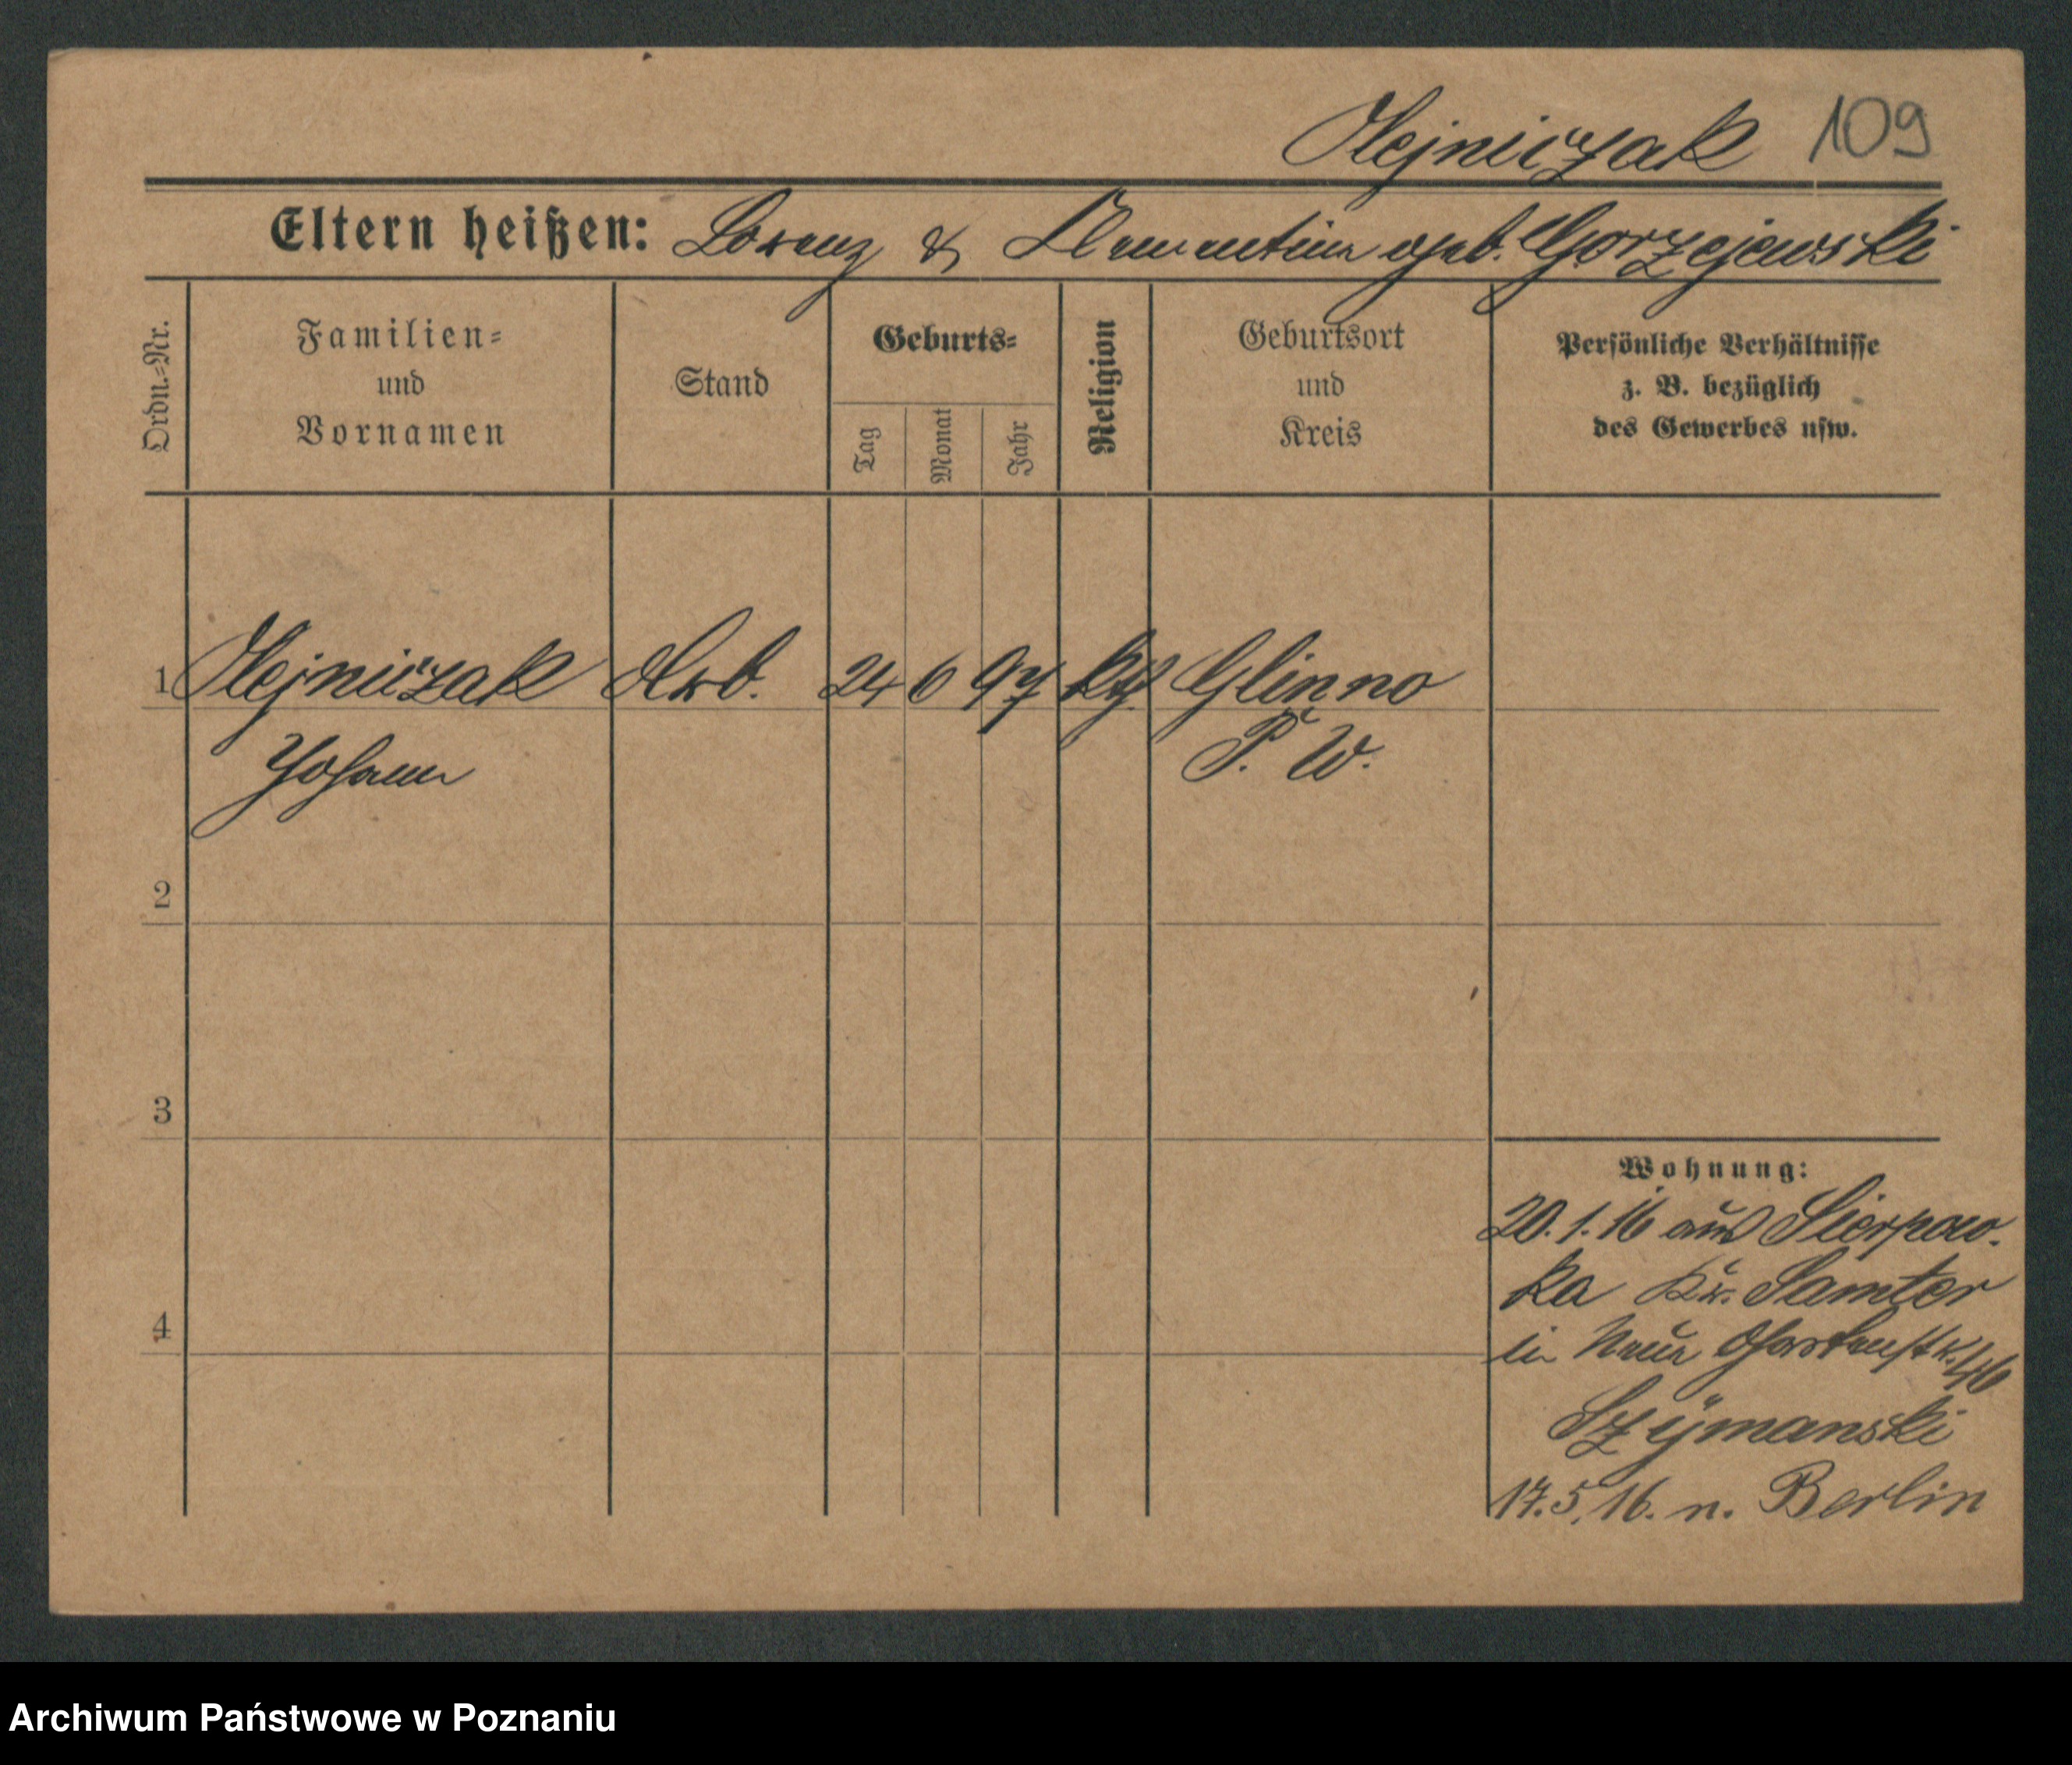 Olejniczak 109
Eltern heißen: Lorenz & Klementine geb. Gorzejewski
Ordn.-Nr.
Familien-
und
Vornamen
Stand
Geburts-
Tag
Monat
Jahr
Religion
Geburtsort
und
Kreis
Persönliche Verhältnisse
z. B. bezüglich
des Gewerbes usw.
1 Olejniczak Arb. 24 6 97 kth Glinno
Johann P. W.
2
3
4
Wohnung:
20.1.16 aus Sierpow-
ka Kr. Samter
in Neue Gartenstr.
Szymanski
17.5.16. n. Berlin
Archiwum Państwowe w Poznaniu